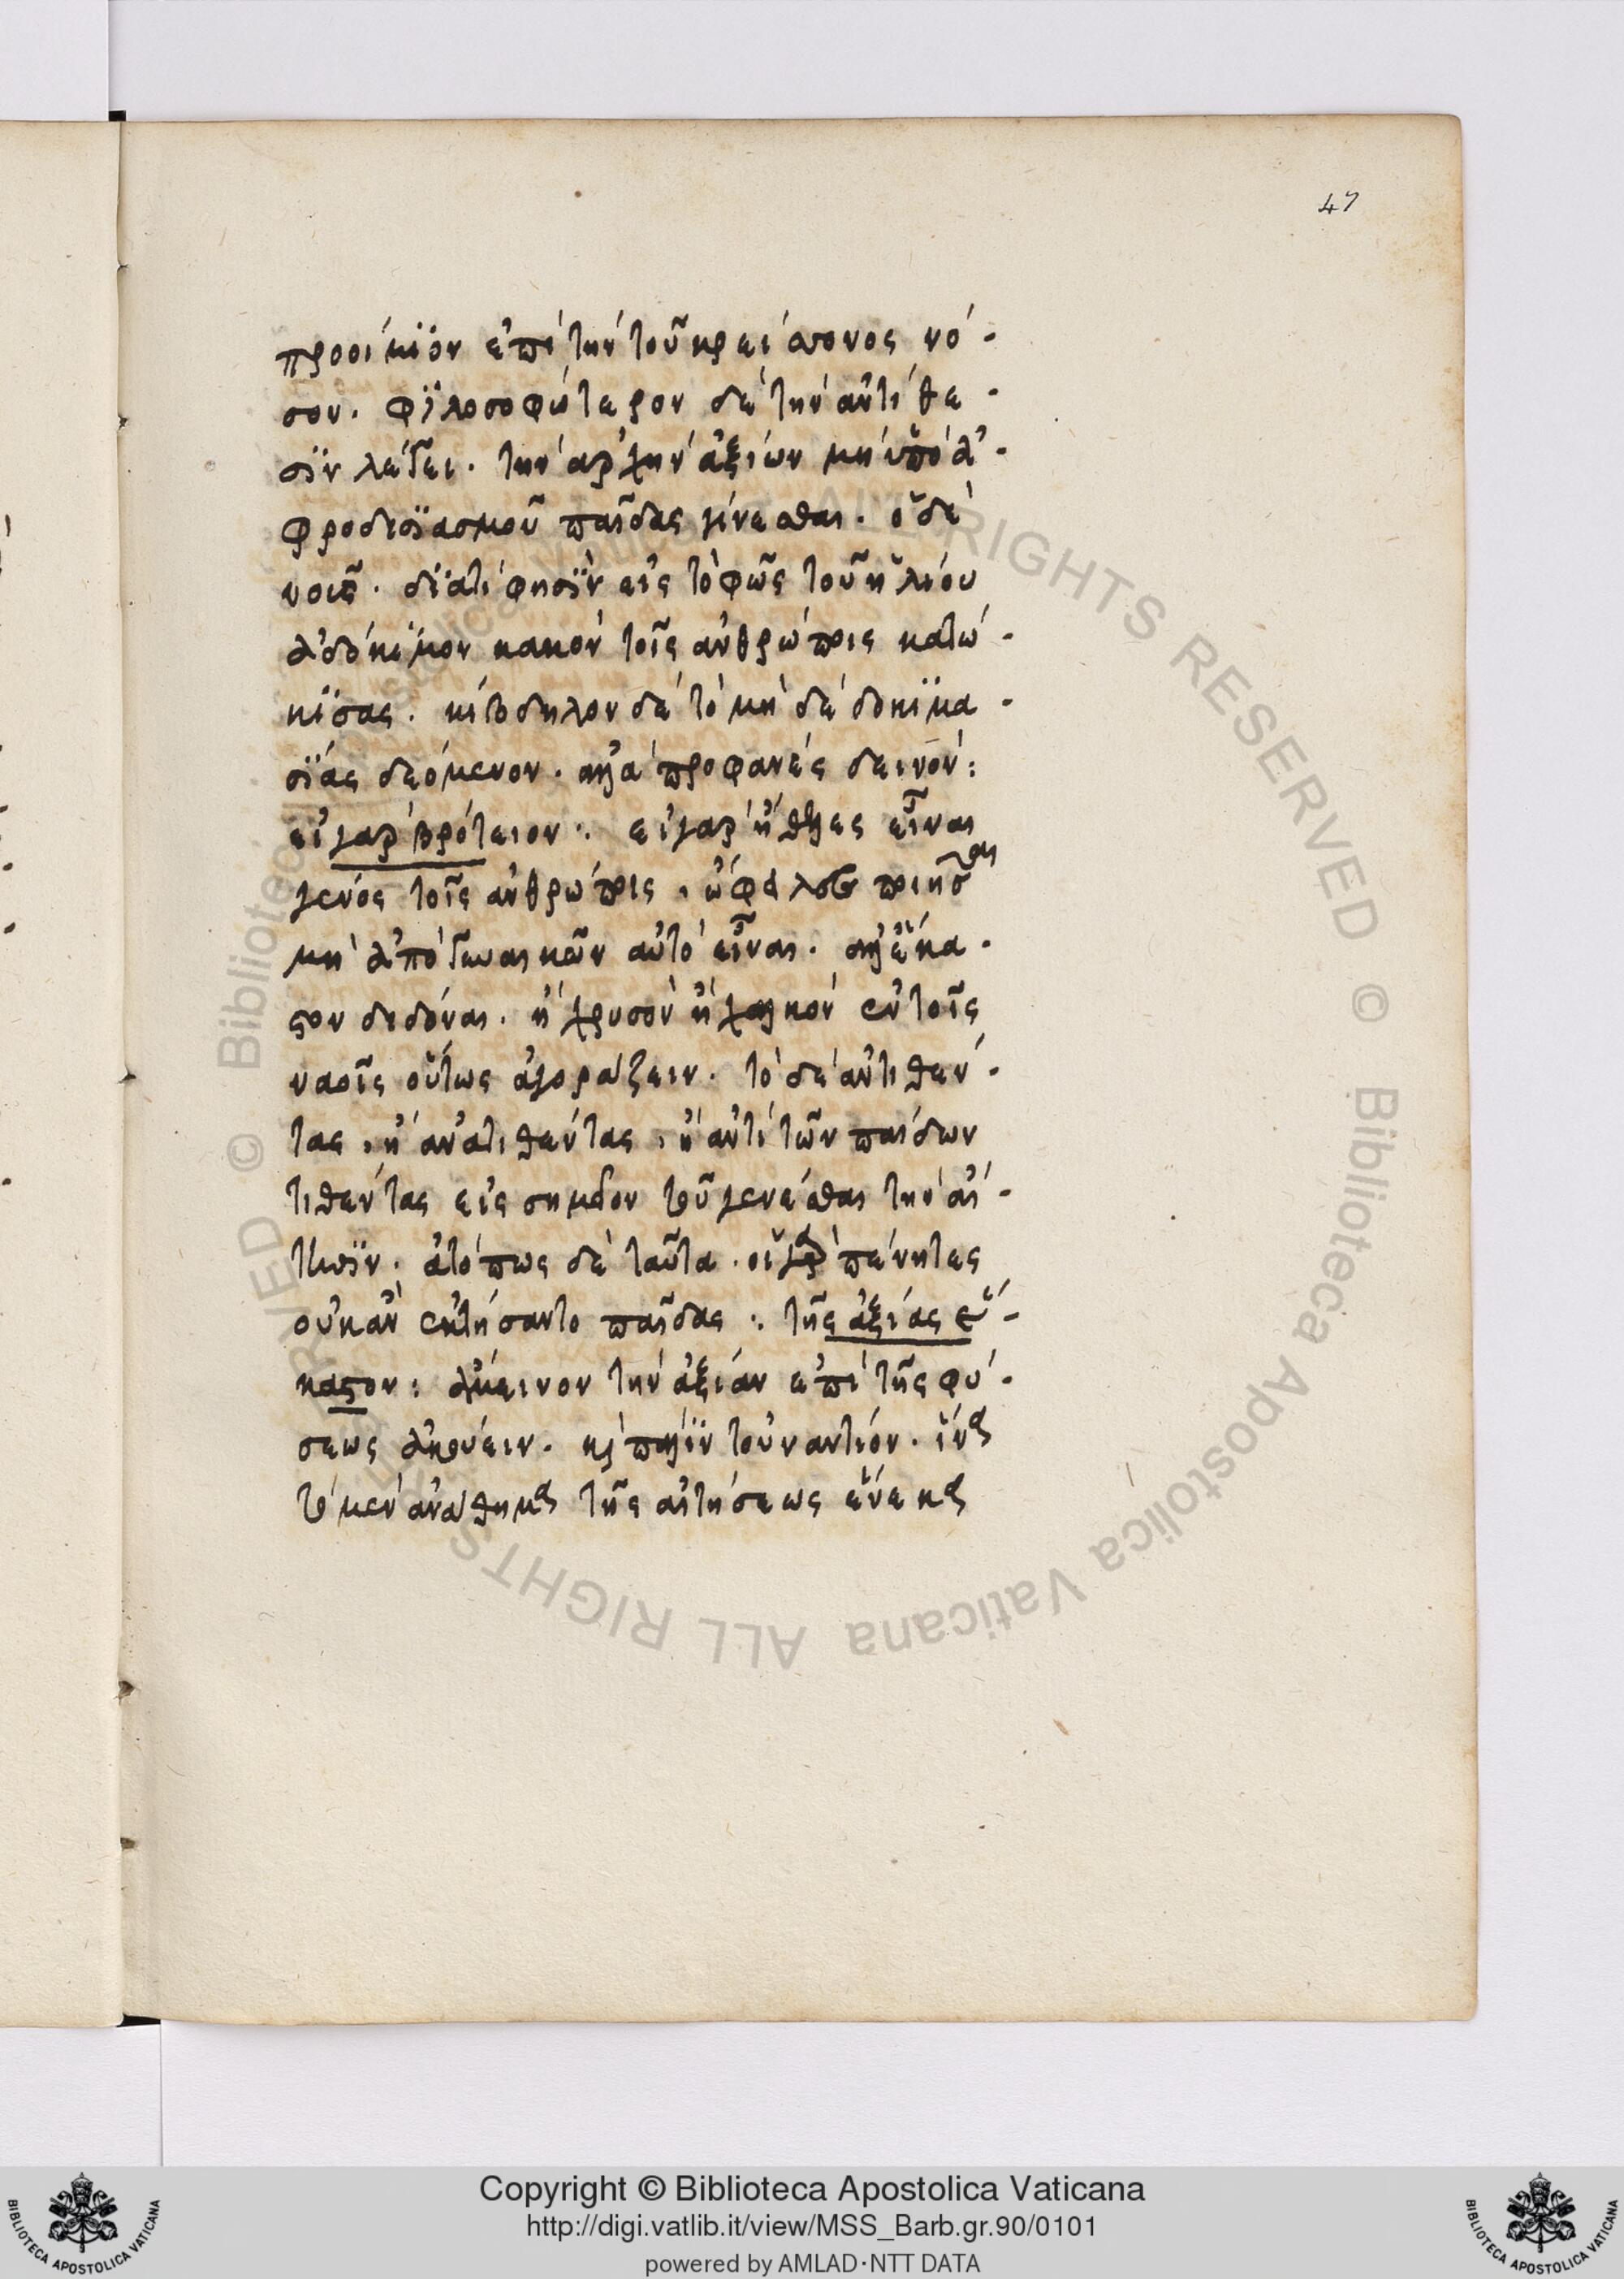 47
προοίμϊον ἐπὶ τὴν τοῦ κρείττονος νό-
σον. φϊλοσοφώτερον δὲ τὴν ἀντίθε-
σϊν λέγει. τὴν ἀρχὴν ἀξιῶν μὴ ὑπὸ ἀ-
φροδισϊασμοῦ παῖδας γίνεσθαι. ὁ δὲ
νοῦς. δϊατί φησϊν εἰς τὸ φῶς τοῦ ἡλίου
ἀδόκιμον κακὸν τοῖς ἀνθρώποις κατώ-
κϊσας. κίβδηλον δὲ τὸ μὴ δὲ δοκϊμα-
σϊας δεόμενον. ἀλλὰ προφανὲς δεινόν:
εἰ γὰρ βρότειον:. εἰ γὰρ ἤθελες εἶναι
γένος τοῖς ἀνθρώποις, ὤφειλες ποιῆσαι
μὴ ἀπὸ γυναικῶν αὐτὸ εἶναι. ἀλλ' ἕκα-
στον διδόναι. ἢ χρυσὸν ἢ χαλκὸν ἐν τοῖς
ναοῖς οὕτως ἀγοράζειν. τὸ δὲ ἀντιθέν-
τας, ἢ ἀνατιθέντας, ἢ ἀντὶ τῶν παίδων
τιθέντας εἰς τοῦ γενέσθαι τὴν αἴ-
τησϊν. ἀτόπως δὲ ταῦτα. οἱ γὰρ πένητες
οὐκ ἂν ἐκτήσαντο παῖδας:. τῆς ἀξίας ἕ-
καστον: ἄμεινον τὴν ἀξίαν ἐπὶ τῆς φύ-
σεως ἀκούειν. καὶ πάλϊν τοὐναντίον. ἵνα
τὸ μὲν ἀνάθημα τῆς αἰτήσεως ἕνεκα
Copyright © Biblioteca Apostolica Vaticana
http://digi.vatlib.it/view/MSS_Barb.gr.90/0101
powered by AMLAD·NTT DATA
BIBLIOTECA APOSTOLICA VATICANA
BIBLIOTECA APOSTOLICA VATICANA
© Biblioteca Apostolica Vaticana ALL RIGHTS RESERVED © Biblioteca Apostolica Vaticana ALL RIGHTS RESERVED